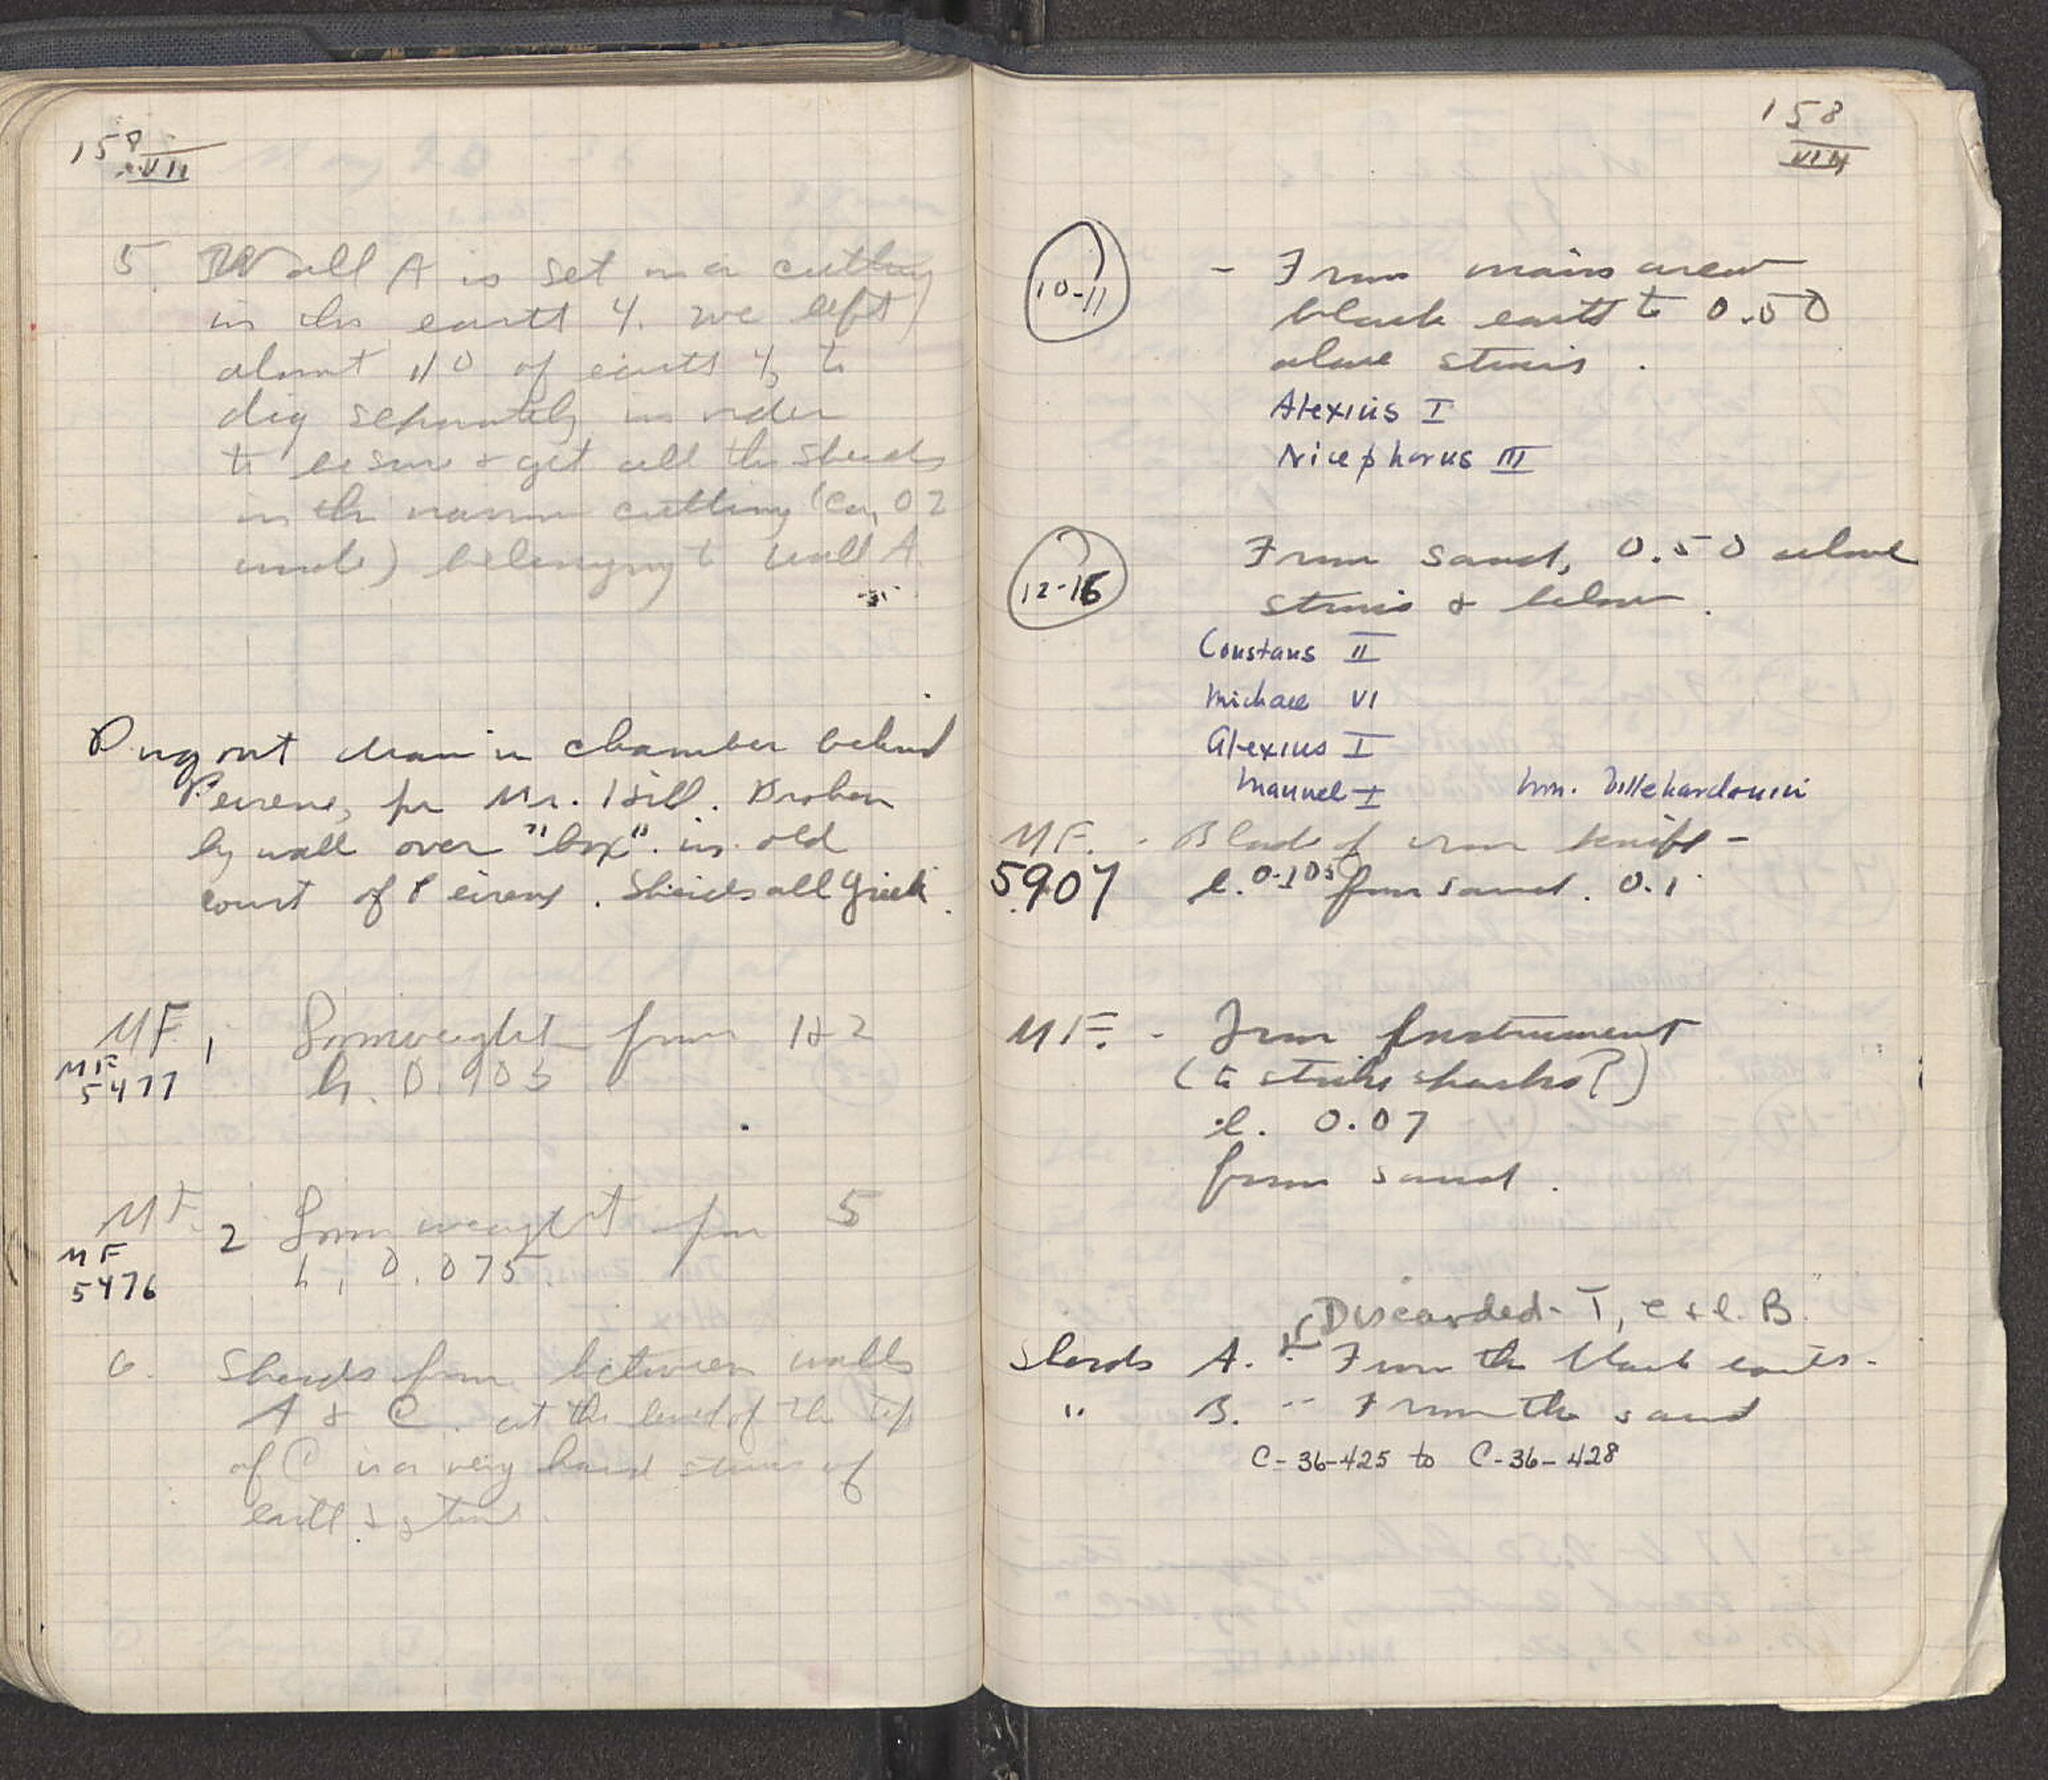 158
VII
5. Wall A is set in a cutting
in the earth 4. We left
almost all of earth 4 to
dig separately in order
to be sure & get all the sherds
in the narrow cutting (ca. 02
wide) belonging to wall A.
Dug out drain in chamber behind
Peirene, for Mr. Hill. Broken
by wall over "box" in old
court of Peirene. Sherds all Greek.
MF. 1. Loomweight from 1 & 2
MF
5477
h. 0.
MF. 2 Loomweight from 5
MF
5476
h, 0.075
6. Sherds from between walls
A & C. at the level of the top
of C is a very hard stereo of
earth &
158
VIII
10-11 - From main area
black earth to 0.50
above stereo.
Alexius I
Nicephorus III
12-16 From sand, 0.50 above
stereo & below.
Constans II
Michael VI
Alexius I
Manuel I Wm. Villehardouin
MF. - Blade of iron knife -
5907 l. 0.105 from sand. 0.1
MF. - Iron Instrument
(to strike sparks?)
l. 0.07
from sand.
Discarded - T, C & l. B.
Sherds A. - From the black earth.
" B. - From the sand
C-36-425 to C-36-428